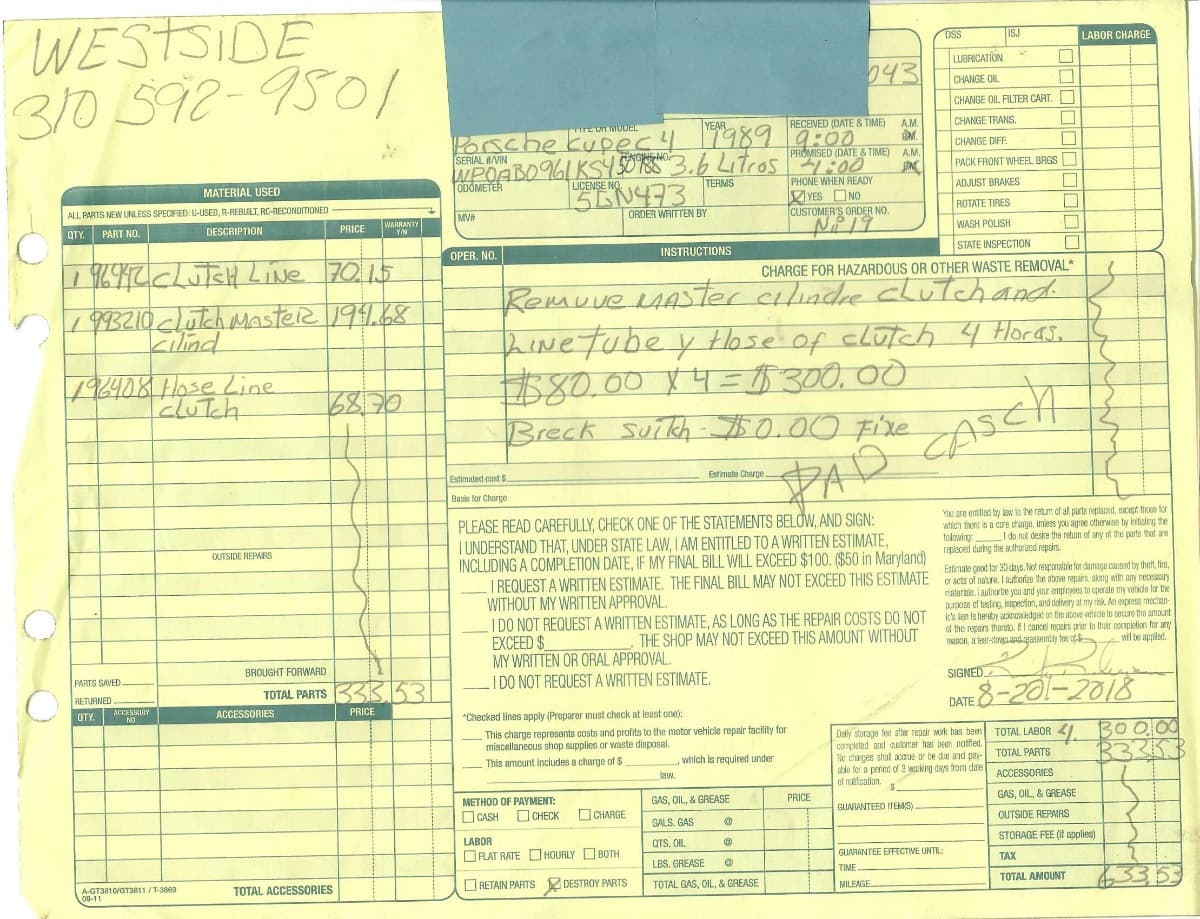 WESTSIDE
310 592-9501
043
TYPE OR MODEL
YEAR
RECEIVED (DATE & TIME) A.M.
P.M.
Porsche cupec 4
1989
9:00
SERIAL #/VIN
ENGINE NO.
PROMISED (DATE & TIME) A.M.
P.M.
WPOAB0961KS450188
3.6 Litros
4:00
ODOMETER
LICENSE NO.
TERMS
PHONE WHEN READY
5GN473
YES NO
MV#
ORDER WRITTEN BY
CUSTOMER'S ORDER NO.
Nº 19
DSS
ISJ
LABOR CHARGE
LUBRICATION
CHANGE OIL
CHANGE OIL FILTER CART.
CHANGE TRANS.
CHANGE DIFF.
PACK FRONT WHEEL BRGS
ADJUST BRAKES
ROTATE TIRES
WASH POLISH
STATE INSPECTION
MATERIAL USED
ALL PARTS NEW UNLESS SPECIFIED: U-USED, R-REBUILT, RC-RECONDITIONED
QTY. PART NO. DESCRIPTION PRICE WARRANTY Y/N
1 96442 CLUTCH LINE 70.15
1 993210 CLUTCH MASTER 194.68
cilind
1 96408 Hose Line
CLUTCH 68.70
OUTSIDE REPAIRS
BROUGHT FORWARD
PARTS SAVED
RETURNED
TOTAL PARTS 333.53
QTY. ACCESSORY NO ACCESSORIES PRICE
A-GT3810/GT3811 / T-3869
09-11
TOTAL ACCESSORIES
OPER. NO. INSTRUCTIONS
CHARGE FOR HAZARDOUS OR OTHER WASTE REMOVAL*
Remuve MASTER cilindre CLUTCH and.
LINE TUBE y Hose of CLUTCH 4 Horas.
$80.00 x 4 = $300.00
Breck suitch - $0.00 Fixe
PAD CASCH
Estimated cost $
Estimate Charge
Basis for Charge
PLEASE READ CAREFULLY, CHECK ONE OF THE STATEMENTS BELOW, AND SIGN:
I UNDERSTAND THAT, UNDER STATE LAW, I AM ENTITLED TO A WRITTEN ESTIMATE,
INCLUDING A COMPLETION DATE, IF MY FINAL BILL WILL EXCEED $100. ($50 in Maryland)
I REQUEST A WRITTEN ESTIMATE. THE FINAL BILL MAY NOT EXCEED THIS ESTIMATE
WITHOUT MY WRITTEN APPROVAL.
I DO NOT REQUEST A WRITTEN ESTIMATE, AS LONG AS THE REPAIR COSTS DO NOT
EXCEED $ . THE SHOP MAY NOT EXCEED THIS AMOUNT WITHOUT
MY WRITTEN OR ORAL APPROVAL.
I DO NOT REQUEST A WRITTEN ESTIMATE.
You are entitled by law to the return of all parts replaced, except those for
which there is a core charge, unless you agree otherwise by initialing the
following: I do not desire the return of any of the parts that are
replaced during the authorized repairs.
Estimate good for 30 days. Not responsible for damage caused by theft, fire,
or acts of nature. I authorize the above repairs, along with any necessary
materials. I authorize you and your employees to operate my vehicle for the
purpose of testing, inspection, and delivery at my risk. An express mechan-
ic's lien is hereby acknowledged on the above vehicle to secure the amount
of the repairs thereto. If I cancel repairs prior to their completion for any
reason, a tear-down and reassembly fee of $ will be applied.
SIGNED
DATE 8-201-2018
*Checked lines apply (Preparer must check at least one):
This charge represents costs and profits to the motor vehicle repair facility for
miscellaneous shop supplies or waste disposal.
This amount includes a charge of $ , which is required under
law.
METHOD OF PAYMENT:
CASH CHECK CHARGE
LABOR
FLAT RATE HOURLY BOTH
RETAIN PARTS DESTROY PARTS
GAS, OIL, & GREASE PRICE
GALS. GAS @
QTS. OIL @
LBS. GREASE @
TOTAL GAS, OIL, & GREASE
Daily storage fee after repair work has been
completed and customer has been notified.
No charges shall accrue or be due and pay-
able for a period of 3 working days from date
of notification. $
GUARANTEED ITEM(S)
GUARANTEE EFFECTIVE UNTIL:
TIME
MILEAGE
TOTAL LABOR 4. 300.00
TOTAL PARTS 333.53
ACCESSORIES
GAS, OIL, & GREASE
OUTSIDE REPAIRS
STORAGE FEE (if applies)
TAX
TOTAL AMOUNT 633.53